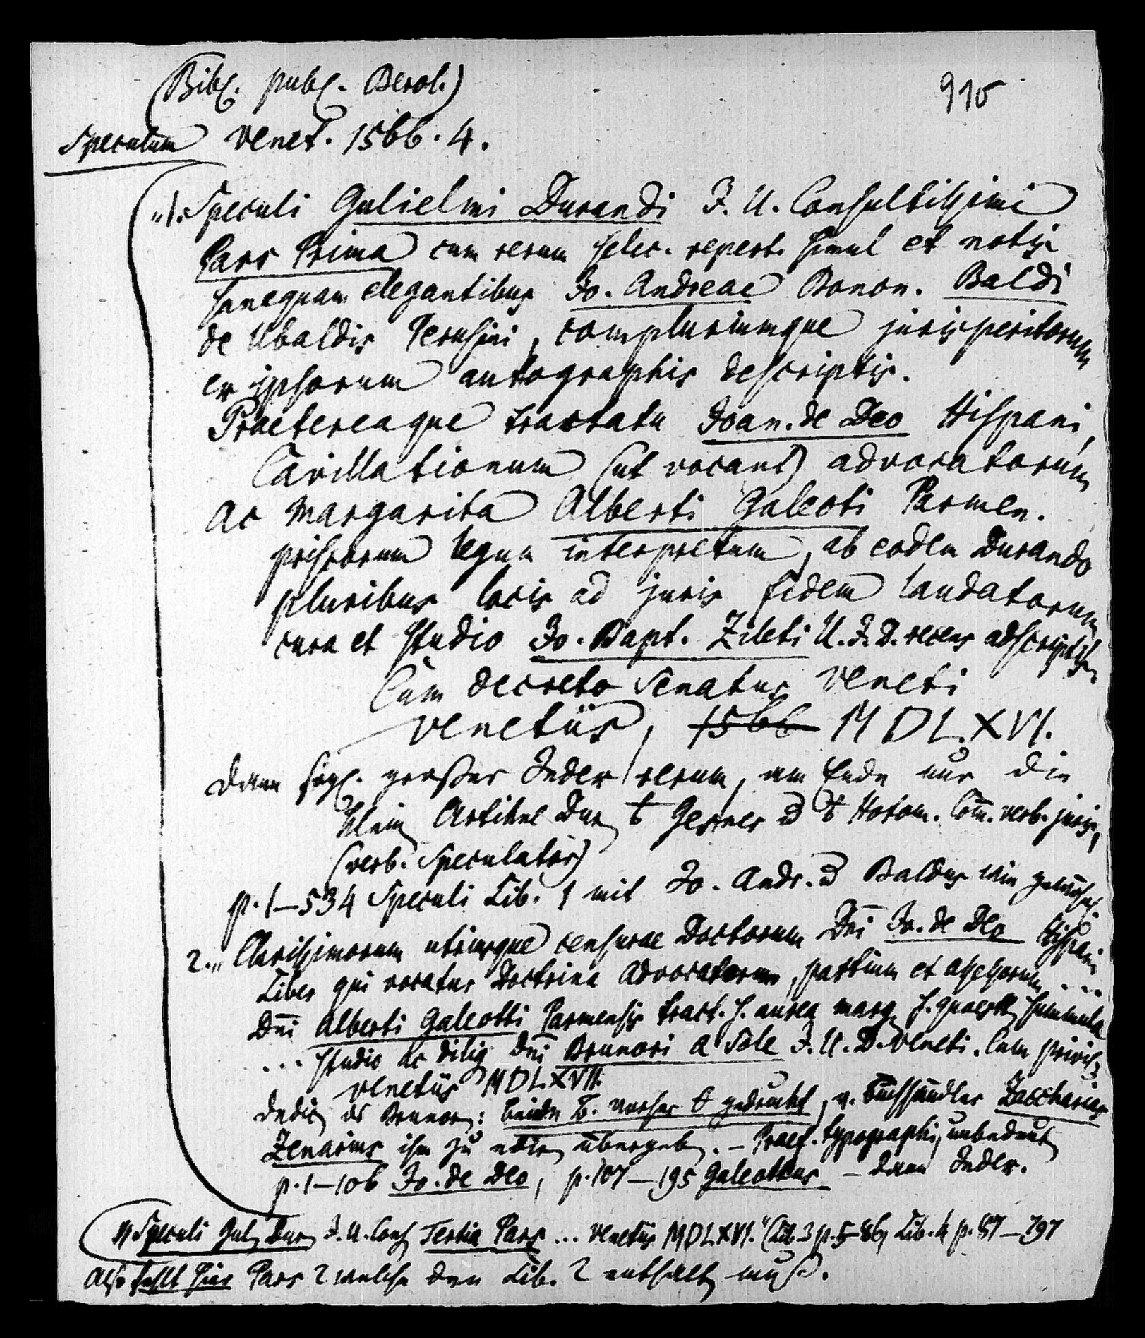 (Bibl. publ. Berol.)
915
Speculum Venet. 1566. 4.
„1. Speculi Gulielmi Durandi J. U. Consultissimi
Pars Prima cum rerum selec. repert. simul et notis
sanequam elegantibus Jo. Andreae Bonon. Baldi
de Ubaldis Perusini, compluriumque jurisperitorum
ex ipsorum autographis descriptis.
Praetereaque tractatu Joan. de Deo Hispani,
Cavillationum (ut vocant) advocatorum
ac Margarita Alberti Galeoti Parmen.
priscorum legum interpretum, ab eodem Durando
pluribus locis ad juris fidem laudatorum
cura et studio Jo. Bapt. Zileti U. J. D. recens adscriptis
Cum decreto Senatus Veneti
Venetiis, 1566 MDLXVI.
Dann folgl. großer Index rerum, am Ende nur die
klein Artikel Dur. Gesner Hotom. Com. verb. juris,
(verb. Speculator)
p. 1–534 Speculi Lib. 1 mit Jo. Andr. Baldus wie
2. „Clarissimorum utriusque censurae Doctorum Dni Jo. de Deo Hispani
Liber qui vocatur Doctrina Advocatorum, partium et assessorum ...
Dni Alberti Galeotti Parmensis tract. s. aurea marg. s. quaest. summula
... studio ac dilig. Dni Brunori a Sole J. U. D. Veneti. Cum privil.
Venetiis MDLXVII.
Dedic. des Brunor: beide vorher gedruckt, v. Buchhändler Zaccharias
Zenarius ihm zu übergeb. – Praef. typographi, unbedeut
p. 1–106 Jo. de Deo, p. 107–195 Galeottus – dann Index.
„Speculi Gul. Dur. J. U. Cons. Tertia Pars ... Venetiis MDLXVI.“ (Lib. 3 p. 5–86, Lib. 4 p. 87–797
Also fehlt hier Pars 2 welche den Lib. 2 enthalt muß.